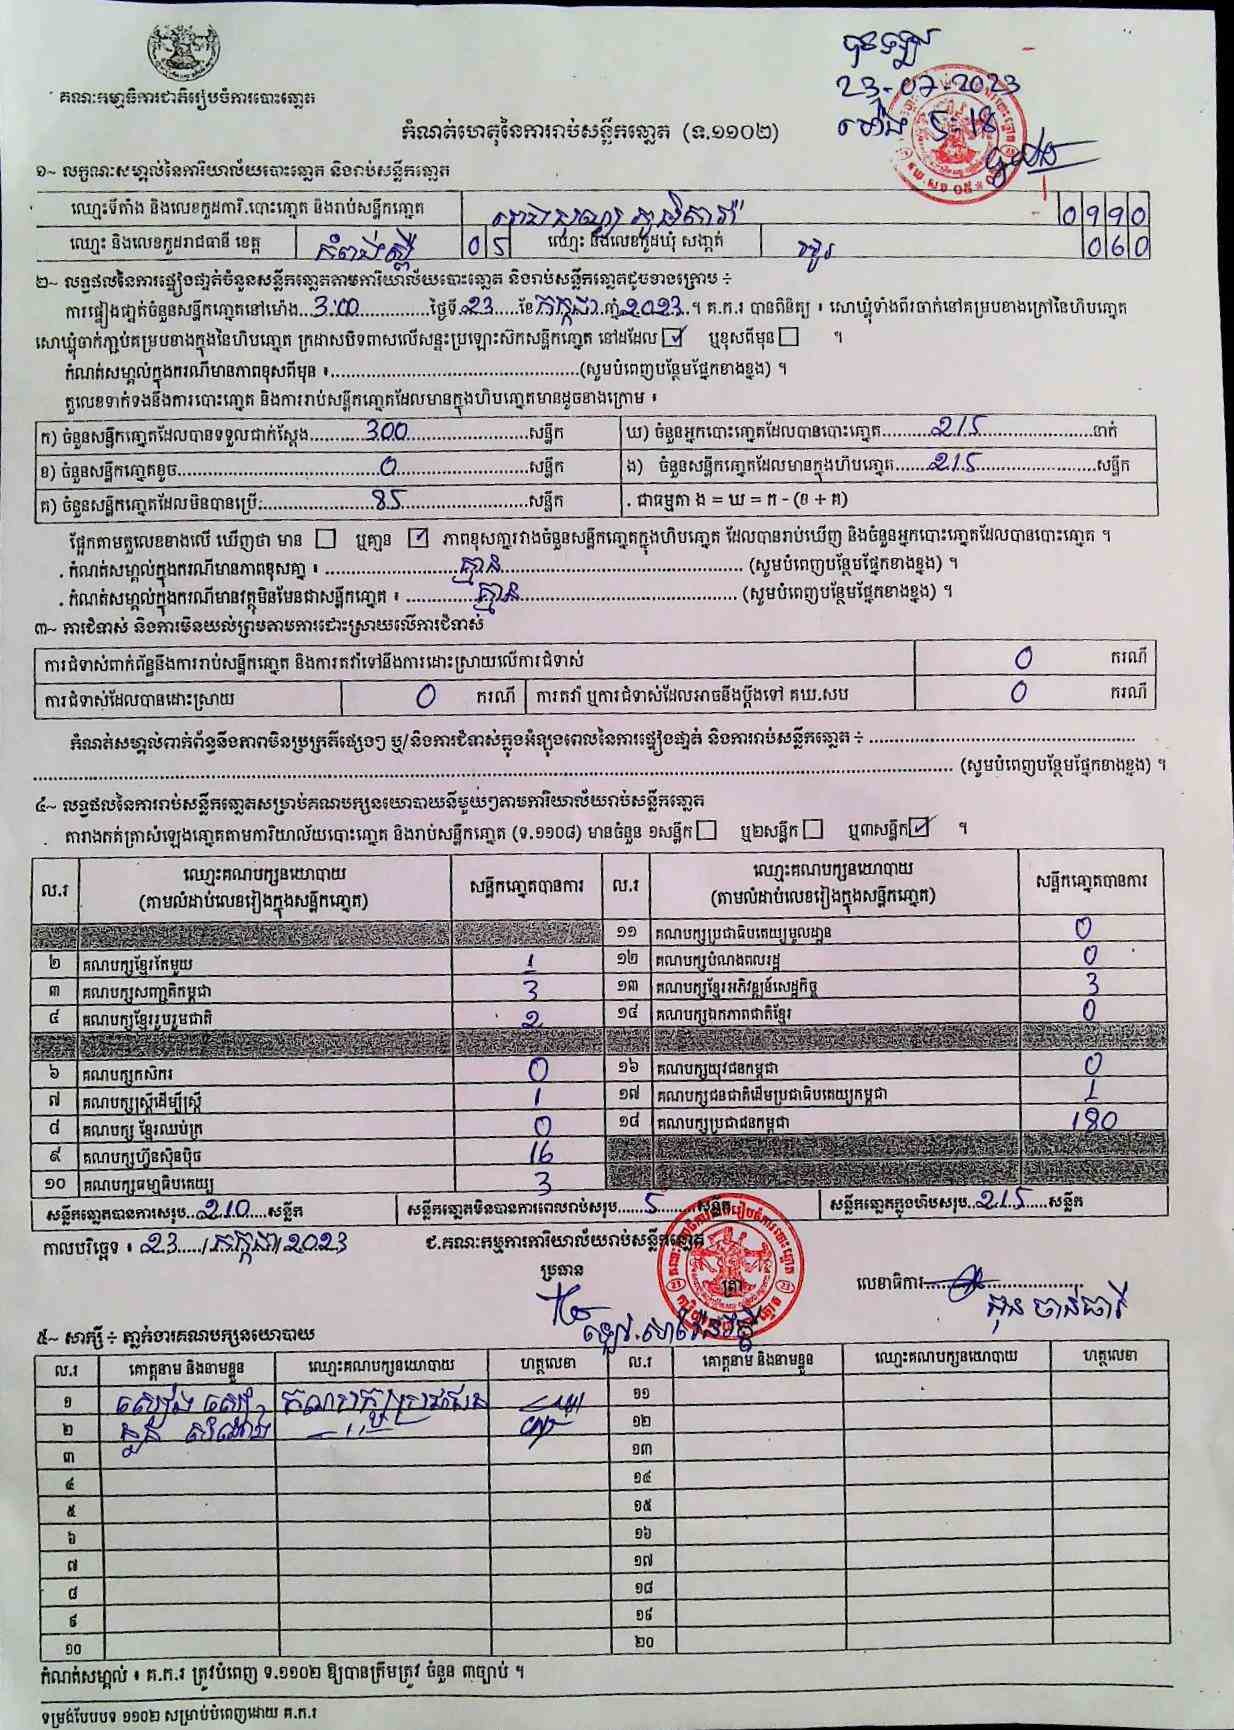 គណៈកម្មាធិការជាតិរៀបចំការបោះឆ្នោត
23-07-2023
ម៉ោង 5:18
កំណត់ហេតុនៃការរាប់សន្លឹកឆ្នោត (ទ.១១០២)
១~ លក្ខណៈសម្គាល់នៃការិយាល័យបោះឆ្នោត និងរាប់សន្លឹកឆ្នោត
ឈ្មោះទីតាំង និងលេខកូដការិ.បោះឆ្នោត និងរាប់សន្លឹកឆ្នោត 0990
ឈ្មោះ និងលេខកូដរាជធានី ខេត្ត កំពង់ស្ពឺ 05 ឈ្មោះ និងលេខកូដឃុំ សង្កាត់ 060
២~ លទ្ធផលនៃការផ្ទៀងផ្ទាត់ចំនួនសន្លឹកឆ្នោតតាមការិយាល័យបោះឆ្នោត និងរាប់សន្លឹកឆ្នោតដូចខាងក្រោម ÷
ការផ្ទៀងផ្ទាត់ចំនួនសន្លឹកឆ្នោតនៅម៉ោង...3:00...ថ្ងៃទី.23...ខែ កក្កដា ឆ្នាំ 2023.។ គ.ក.រ បានពិនិត្យ ៖ សោឃ្លុំទាំងពីរចាក់នៅគម្របខាងក្រៅនៃហិបឆ្នោត
សោឃ្លុំចាក់ភ្ជាប់គម្របខាងក្នុងនៃហិបឆ្នោត ក្រដាសបិទពាសលើសន្ទះប្រឡោះស៊កសន្លឹកឆ្នោត នៅដដែល ☑ ឬខុសពីមុន ☐ ។
កំណត់សម្គាល់ក្នុងករណីមានភាពខុសពីមុន ៖...(សូមបំពេញបន្ថែមផ្នែកខាងខ្នង) ។
តួលេខទាក់ទងនឹងការបោះឆ្នោត និងការរាប់សន្លឹកឆ្នោតដែលមានក្នុងហិបឆ្នោតមានដូចខាងក្រោម ៖
ក) ចំនួនសន្លឹកឆ្នោតដែលបានទទួលជាក់ស្តែង...300...សន្លឹក ឃ) ចំនួនអ្នកបោះឆ្នោតដែលបានបោះឆ្នោត...215...នាក់
ខ) ចំនួនសន្លឹកឆ្នោតខូច...0...សន្លឹក ង) ចំនួនសន្លឹកឆ្នោតដែលមានក្នុងហិបឆ្នោត...215...សន្លឹក
គ) ចំនួនសន្លឹកឆ្នោតដែលមិនបានប្រើ:...85...សន្លឹក . ជាធម្មតា ង = ឃ = ក - (ខ + គ)
ផ្អែកតាមតួលេខខាងលើ ឃើញថា មាន ☐ ឬគ្មាន ☑ ភាពខុសគ្នារវាងចំនួនសន្លឹកឆ្នោតក្នុងហិបឆ្នោត ដែលបានរាប់ឃើញ និងចំនួនអ្នកបោះឆ្នោតដែលបានបោះឆ្នោត ។
. កំណត់សម្គាល់ក្នុងករណីមានភាពខុសគ្នា ៖ ...គ្មាន... (សូមបំពេញបន្ថែមផ្នែកខាងខ្នង) ។
. កំណត់សម្គាល់ក្នុងករណីមានវត្ថុមិនមែនជាសន្លឹកឆ្នោត ៖ ...គ្មាន... (សូមបំពេញបន្ថែមផ្នែកខាងខ្នង) ។
៣~ ការជំទាស់ និងការមិនយល់ព្រមតាមការដោះស្រាយលើការជំទាស់
ការជំទាស់ពាក់ព័ន្ធនឹងការរាប់សន្លឹកឆ្នោត និងការតវ៉ាទៅនឹងការដោះស្រាយលើការជំទាស់ 0 ករណី
ការជំទាស់ដែលបានដោះស្រាយ 0 ករណី ការតវ៉ា ឬការជំទាស់ដែលអាចនឹងប្តឹងទៅ គឃ.សប 0 ករណី
កំណត់សម្គាល់ពាក់ព័ន្ធនឹងភាពមិនប្រក្រតីផ្សេងៗ ឬ/និងការជំទាស់ក្នុងអំឡុងពេលនៃការផ្ទៀងផ្ទាត់ និងការរាប់សន្លឹកឆ្នោត ÷ ...
... (សូមបំពេញបន្ថែមផ្នែកខាងខ្នង) ។
៤~ លទ្ធផលនៃការរាប់សន្លឹកឆ្នោតសម្រាប់គណបក្សនយោបាយនីមួយៗតាមការិយាល័យរាប់សន្លឹកឆ្នោត
តារាងកត់ត្រាសំឡេងឆ្នោតតាមការិយាល័យបោះឆ្នោត និងរាប់សន្លឹកឆ្នោត (ទ.១១០៨) មានចំនួន ១សន្លឹក ☐ ឬ២សន្លឹក ☐ ឬ៣សន្លឹក ☑ ។
ល.រ ឈ្មោះគណបក្សនយោបាយ (តាមលំដាប់លេខរៀងក្នុងសន្លឹកឆ្នោត) សន្លឹកឆ្នោតបានការ ល.រ ឈ្មោះគណបក្សនយោបាយ (តាមលំដាប់លេខរៀងក្នុងសន្លឹកឆ្នោត) សន្លឹកឆ្នោតបានការ
១១ គណបក្សប្រជាធិបតេយ្យមូលដ្ឋាន 0
២ គណបក្សខ្មែរតែមួយ 1 ១២ គណបក្សបំណងពលរដ្ឋ 0
៣ គណបក្សសញ្ជាតិកម្ពុជា 3 ១៣ គណបក្សខ្មែរអភិវឌ្ឍន៍សេដ្ឋកិច្ច 3
៤ គណបក្សខ្មែររួបរួមជាតិ 2 ១៤ គណបក្សឯកភាពជាតិខ្មែរ 0
៦ គណបក្សកសិករ 0 ១៦ គណបក្សយុវជនកម្ពុជា 0
៧ គណបក្សស្ត្រីដើម្បីស្ត្រី 1 ១៧ គណបក្សជនជាតិដើមប្រជាធិបតេយ្យកម្ពុជា 1
៨ គណបក្ស ខ្មែរឈប់ក្រ 0 ១៨ គណបក្សប្រជាជនកម្ពុជា 180
៩ គណបក្សហ៊្វុនស៊ិនប៉ិច 16
១០ គណបក្សធម្មាធិបតេយ្យ 3
សន្លឹកឆ្នោតបានការសរុប..210....សន្លឹក សន្លឹកឆ្នោតមិនបានការពេលរាប់សរុប.....5.......សន្លឹក សន្លឹកឆ្នោតក្នុងហិបសរុប..215.....សន្លឹក
កាលបរិច្ឆេទ ៖ 23..../កក្កដា/2023 ជ.គណៈកម្មការការិយាល័យរាប់សន្លឹកឆ្នោត
ប្រធាន ត្រា លេខាធិការ
៥~ សាក្សី ÷ ភ្នាក់ងារគណបក្សនយោបាយ
ល.រ គោត្តនាម និងនាមខ្លួន ឈ្មោះគណបក្សនយោបាយ ហត្ថលេខា ល.រ គោត្តនាម និងនាមខ្លួន ឈ្មោះគណបក្សនយោបាយ ហត្ថលេខា
១ គណបក្សប្រជាជន ១១
២ ១២
៣ ១៣
៤ ១៤
៥ ១៥
៦ ១៦
៧ ១៧
៨ ១៨
៩ ១៩
១០ ២០
កំណត់សម្គាល់ ៖ គ.ក.រ ត្រូវបំពេញ ទ.១១០២ ឱ្យបានត្រឹមត្រូវ ចំនួន ៣ច្បាប់ ។
ទម្រង់បែបបទ ១១០២ សម្រាប់បំពេញដោយ គ.ក.រ